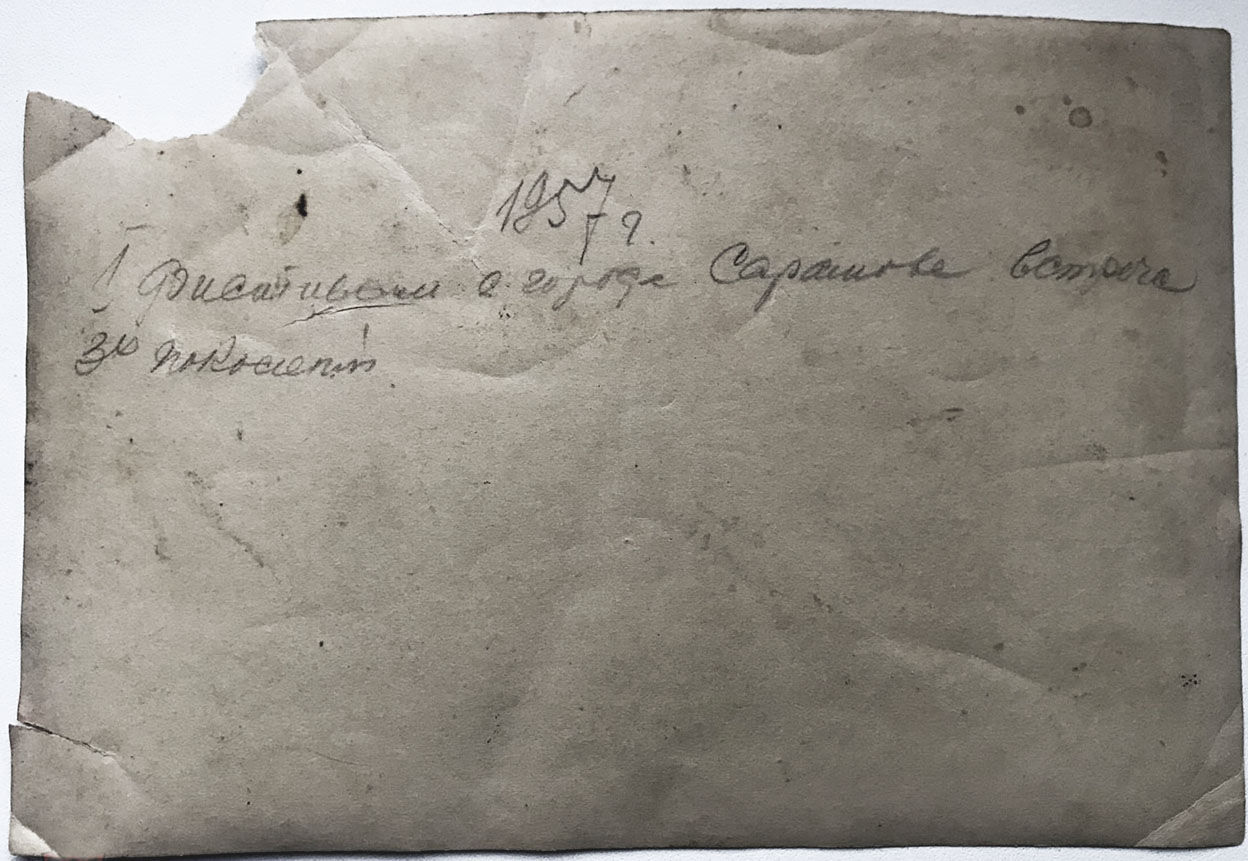 1957 г.
I Фистиваль в городе Саратове встреча
3х поколений